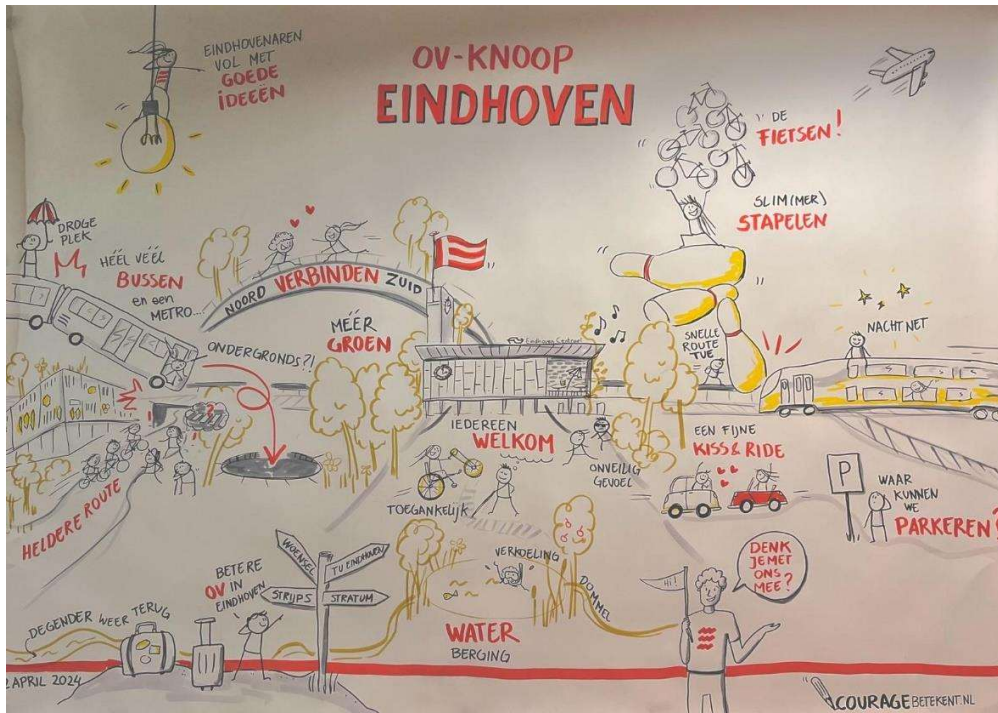 EINDHOVENAREN
VOL MET
GOEDE
IDEEËN
OV-KNOOP
EINDHOVEN
DE
FIETSEN!
SLIM(MER)
STAPELEN
DROGE
PLEK
HÉÉL VÉÉL
BUSSEN
en een
METRO...
NOORD VERBINDEN ZUID
ONDERGRONDS?!
MÉÉR
GROEN
Eindhoven Centraal
SNELLE
ROUTE
TUE
NACHTNET
IEDEREEN
WELKOM
TOEGANKELIJK
ONVEILIG
GEVOEL
EEN FIJNE
KISS & RIDE
P
WAAR
KUNNEN
WE
PARKEREN?
HELDERE ROUTE
BETERE
OV IN
EINDHOVEN
WOENSEL
TU EINDHOVEN
STRIJPS
STRATUM
VERKOELING
DOMMEL
WATER
BERGING
HI!
DENK
JE MET
ONS
MEE?
DE GENDER WEER TERUG
2 APRIL 2024
COURAGE BETEKENT.NL